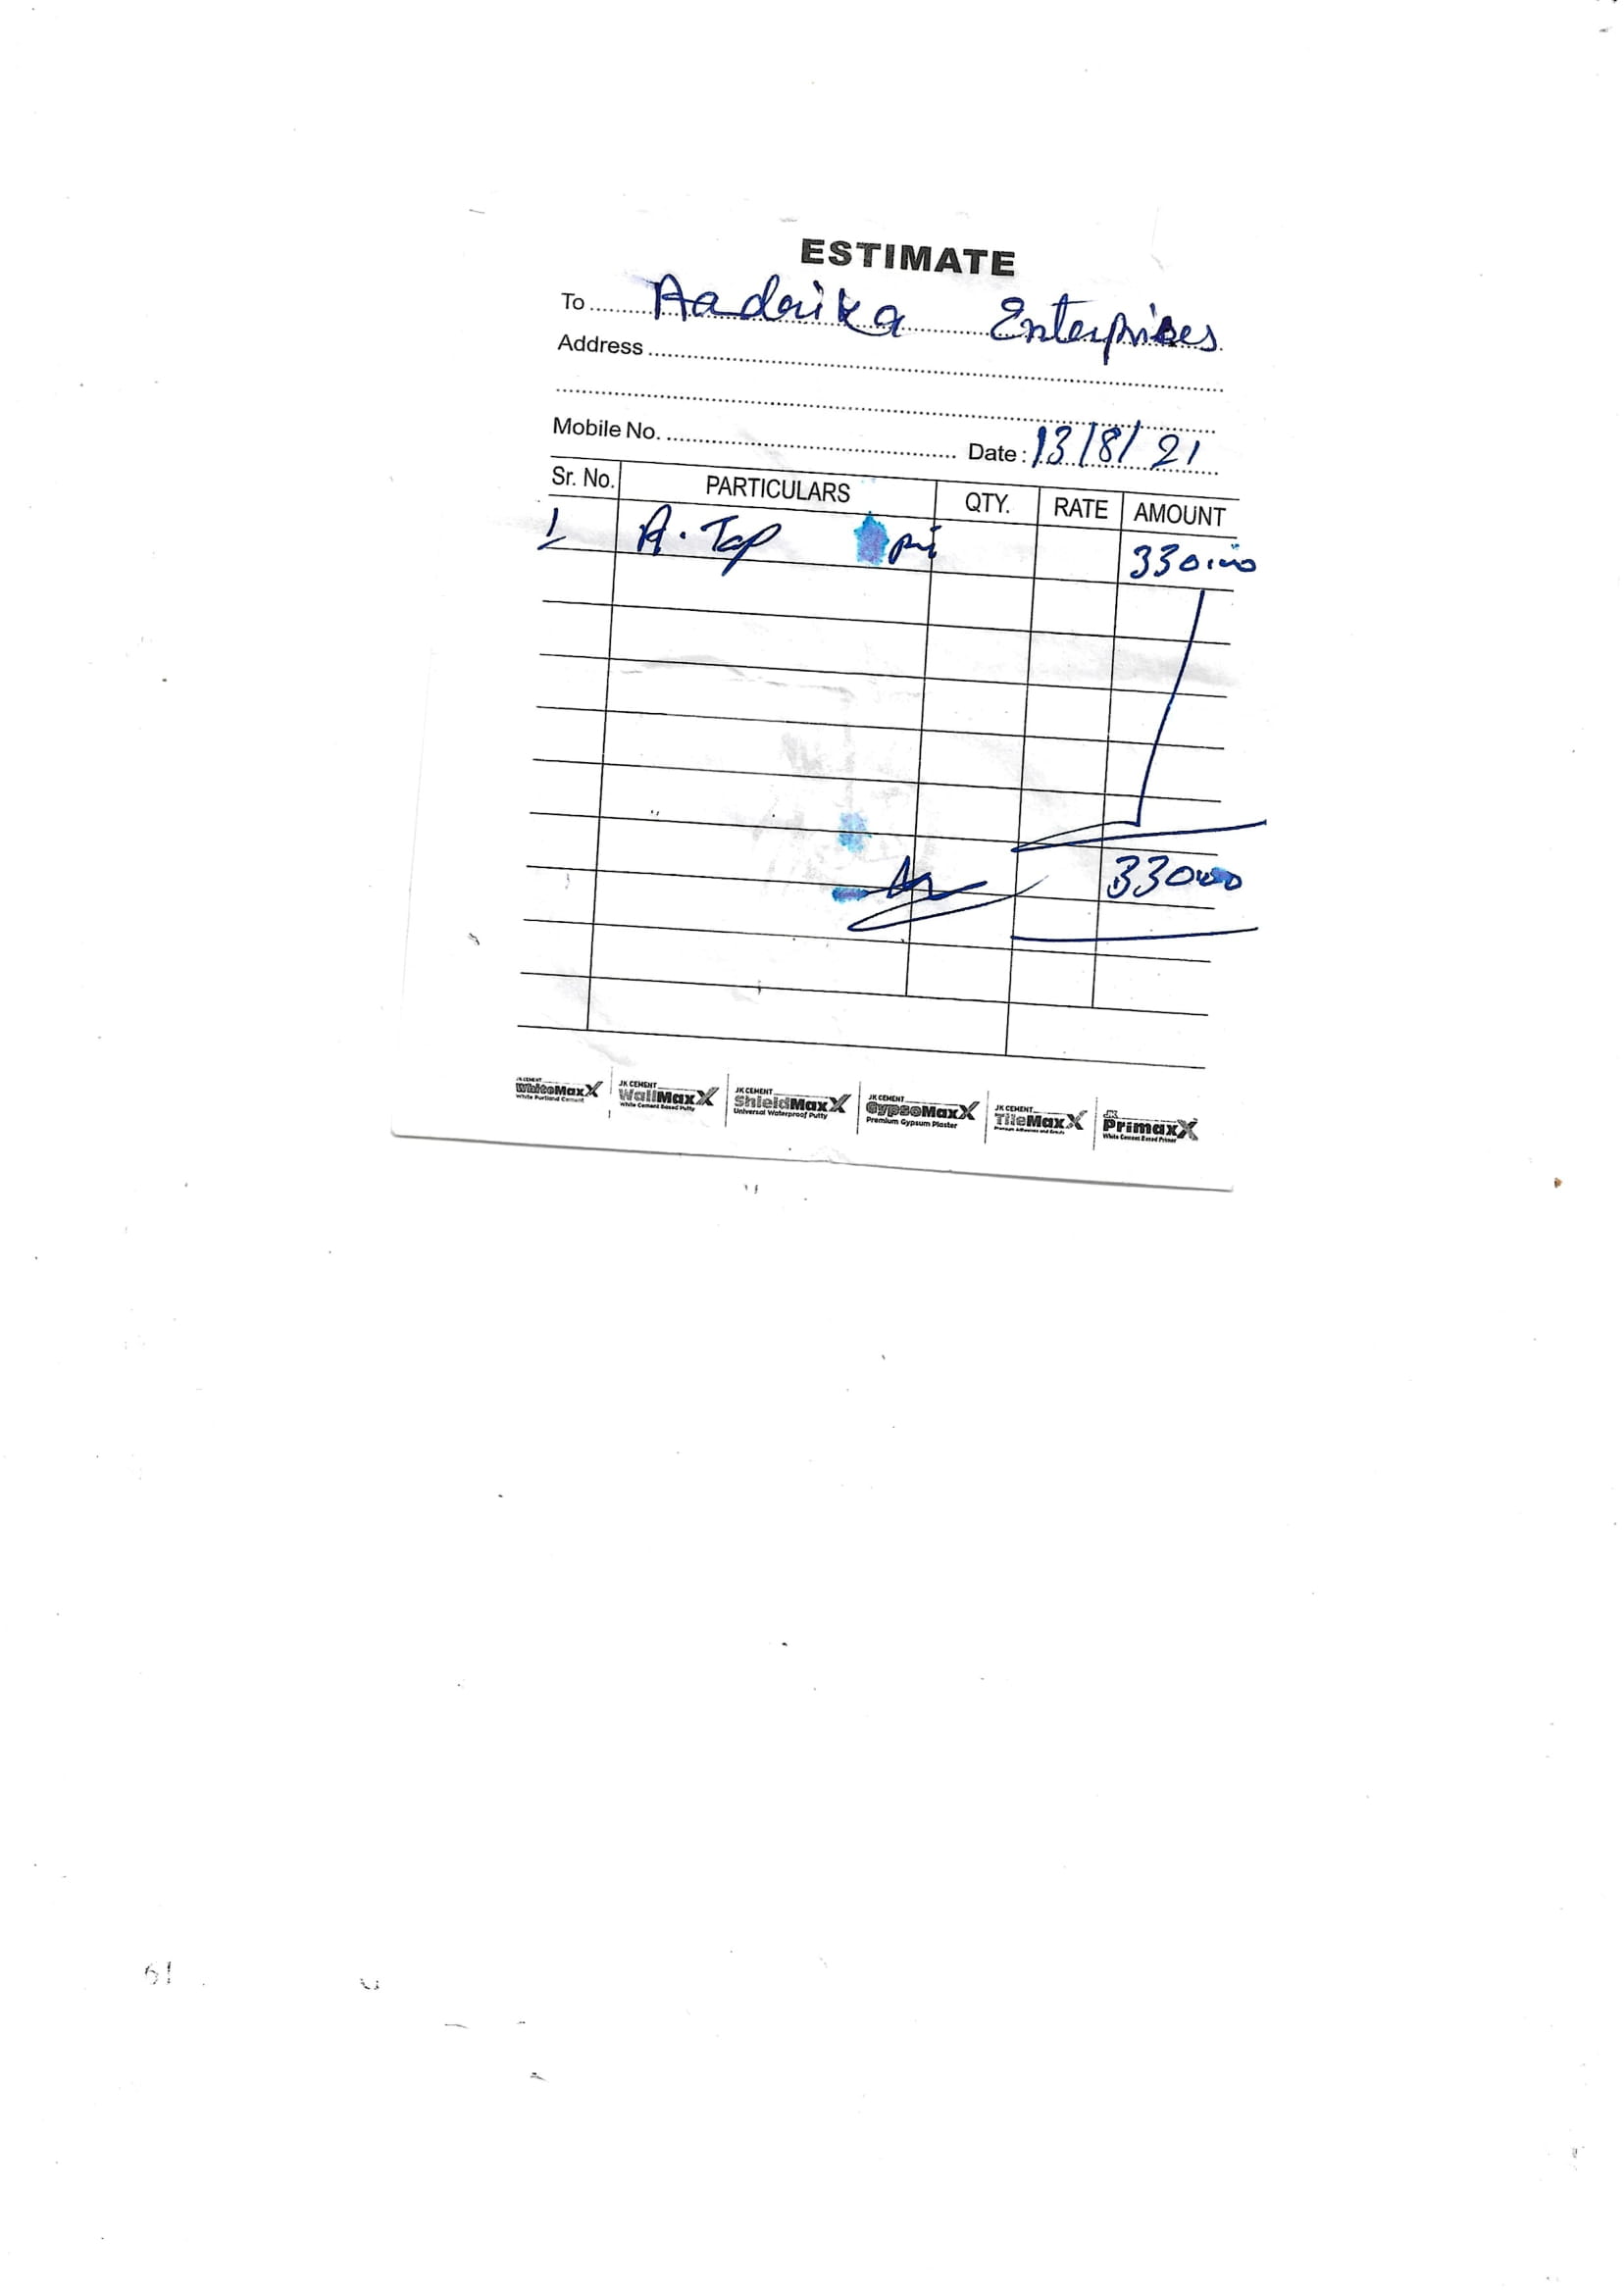 ESTIMATE
To Aadrika Enterprises
Address
Mobile No. Date: 13/8/21
Sr. No. PARTICULARS QTY. RATE AMOUNT
1 A. Tap 330.00
330.00
JK CEMENT WhiteMaxX White Portland Cement
JK CEMENT WallMaxX White Cement Based Putty
JK CEMENT ShieldMaxX Universal Waterproof Putty
JK CEMENT GypsoMaxX Premium Gypsum Plaster
JK CEMENT TileMaxX
JK PrimaxX White Cement Based Primer